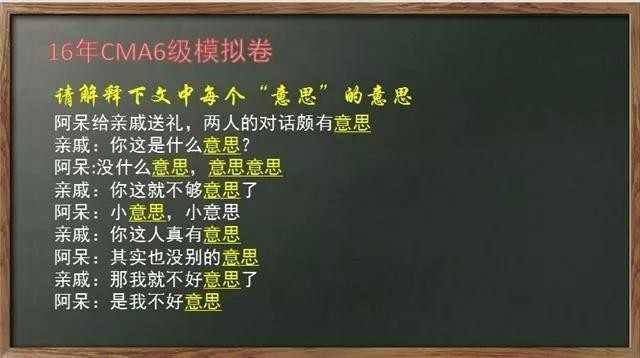 16年CMA6级模拟卷
请解释下文中每个“意思”的意思
阿呆给亲戚送礼，两人的对话颇有意思
亲戚：你这是什么意思？
阿呆:没什么意思，意思意思
亲戚：你这就不够意思了
阿呆：小意思，小意思
亲戚：你这人真有意思
阿呆：其实也没别的意思
亲戚：那我就不好意思了
阿呆：是我不好意思